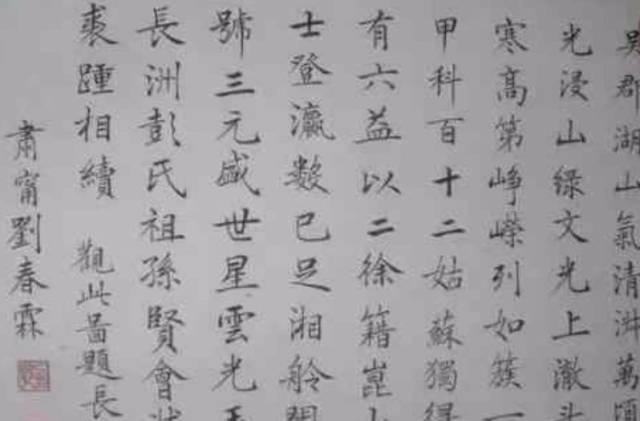 吳郡湖山氣清淑萬頃
光浸山綠文光上激斗
寒高第崢嶸列如簇一
甲科百十二姑蘇獨得
有六益以二徐籍崑山
士登瀛數已足湘舲開
號三元盛世星雲光
長洲彭氏祖孫賢會狀
裘踵相續 觀此圖題長
肅甯劉春霖